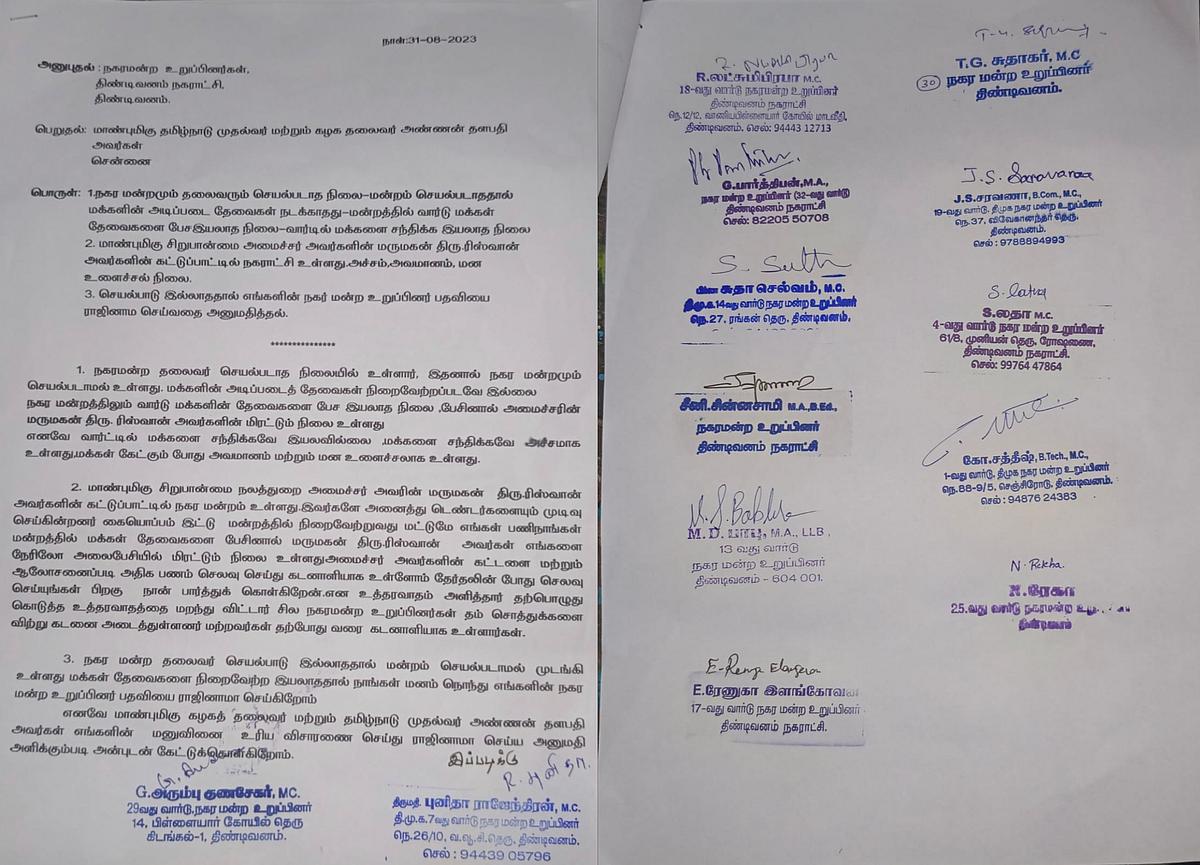 நாள்:31-08-2023
அனுபுதல் : நகரமன்ற உறுப்பினர்கள்,
திண்டிவனம் நகராட்சி.
திண்டிவனம்.
பெறுதல்: மாண்புமிகு தமிழ்நாடு முதல்வர் மற்றும் கழக தலைவர் அண்ணன் தளபதி
அவர்கள்
சென்னை
பொருள்: 1.நகர மன்றமும் தலைவரும் செயல்படாத நிலை-மன்றம் செயல்படாததால்
மக்களின் அடிப்படை தேவைகள் நடக்காதது-மன்றத்தில் வார்டு மக்கள்
தேவைகளை பேசஇயலாத நிலை-வார்டில் மக்களை சந்திக்க இயலாத நிலை
2. மாண்புமிகு சிறுபான்மை அமைச்சர் அவர்களின் மருமகன் திரு.ரிஸ்வான்
அவர்களின் கட்டுப்பாட்டில் நகராட்சி உள்ளது.அச்சம்,அவமானம், மன
உளைச்சல் நிலை.
3. செயல்பாடு இல்லாததால் எங்களின் நகர் மன்ற உறுப்பினர் பதவியை
ராஜினாம செய்வதை அனுமதித்தல்.
***************
1. நகரமன்ற தலைவர் செயல்படாத நிலையில் உள்ளார், இதனால் நகர மன்றமும்
செயல்படாமல் உள்ளது. மக்களின் அடிப்படைத் தேவைகள் நிறைவேற்றப்படவே இல்லை
நகர மன்றத்திலும் வார்டு மக்களின் தேவைகளை பேச இயலாத நிலை ,பேசினால் அமைச்சரின்
மருமகன் திரு. ரிஸ்வான் அவர்களின் மிரட்டும் நிலை உள்ளது
எனவே வார்ட்டில் மக்களை சந்திக்கவே இயலவில்லை ,மக்களை சந்திக்கவே அச்சமாக
உள்ளது,மக்கள் கேட்கும் போது அவமானம் மற்றும் மன உளைச்சலாக உள்ளது.
2. மாண்புமிகு சிறுபான்மை நலத்துறை அமைச்சர் அவரின் மருமகன் திரு.ரிஸ்வான்
அவர்களின் கட்டுப்பாட்டில் நகர மன்றம் உள்ளது.இவர்களே அனைத்து டெண்டர்களையும் முடிவு
செய்கின்றனர் கையொப்பம் இட்டு மன்றத்தில் நிறைவேற்றுவது மட்டுமே எங்கள் பணிநாங்கள்
மன்றத்தில் மக்கள் தேவைகளை பேசினால் மருமகன் திரு.ரிஸ்வான் அவர்கள் எங்களை
நேரிலோ அலைபேசியில் மிரட்டும் நிலை உள்ளதுஅமைச்சர் அவர்களின் கட்டளை மற்றும்
ஆலோசனைப்படி அதிக பணம் செலவு செய்து கடனாளியாக உள்ளோம் தேர்தலின் போது செலவு
செய்யுங்கள் பிறகு நான் பார்த்துக் கொள்கிறேன்.என உத்தரவாதம் அளித்தார் தற்பொழுது
கொடுத்த உத்தரவாதத்தை மறந்து விட்டார் சில நகரமன்ற உறுப்பினர்கள் தம் சொத்துக்களை
விற்று கடனை அடைத்துள்ளனர் மற்றவர்கள் தற்போது வரை கடனாளியாக உள்ளார்கள்.
3. நகர மன்ற தலைவர் செயல்பாடு இல்லாததால் மன்றம் செயல்படாமல் முடங்கி
உள்ளது மக்கள் தேவைகளை நிறைவேற்ற இயலாததால் நாங்கள் மனம் நொந்து எங்களின் நகர
மன்ற உறுப்பினர் பதவியை ராஜினாமா செய்கிறோம்
எனவே மாண்புமிகு கழகத் தலைவர் மற்றும் தமிழ்நாடு முதல்வர் அண்ணன் தளபதி
அவர்கள் எங்களின் மனுவினை உரிய விசாரணை செய்து ராஜினாமா செய்ய அனுமதி
அளிக்கும்படி அன்புடன் கேட்டுக்கொள்கிறோம்.
இப்படிக்கு
G.அரும்பு குணசேகர், MC.
29வது வார்டு,நகர மன்ற உறுப்பினர்
14, பிள்ளையார் கோயில் தெரு
கிடங்கல்-1, திண்டிவனம்.
R. புனிதா.
திருமதி. புனிதா ராஜேந்திரன், M.C.
தி.மு.க.7வது வார்டு நகரமன்ற உறுப்பினர்
நெ.26/10, வ.வூ.சி.தெரு, திண்டிவனம்.
செல் : 94439 05796
R.லட்சுமிபிரபா M.C.
18-வது வார்டு நகரமன்ற உறுப்பினர்
திண்டிவனம் நகராட்சி
நெ.12/12, வாணியபிள்ளையார் கோயில் மாடவீதி,
திண்டிவனம். செல்: 94443 12713
G.பார்த்திபன்,M.A.,
நகர மன்ற உறுப்பினர் (32-வது வார்டு)
திண்டிவனம் நகராட்சி
செல்: 82205 50708
S. Suth
சுதா செல்வம், M.C.
தி.மு.க.14வது வார்டு நகரமன்ற உறுப்பினர்
நெ.27, ரங்கன் தெரு, திண்டிவனம்.
சீனி.சின்னசாமி M.A.,B.Ed.,
நகரமன்ற உறுப்பினர்
திண்டிவனம் நகராட்சி
M.D. பாபு, M.A., LLB.,
13 வது வார்டு
நகர மன்ற உறுப்பினர்
திண்டிவனம் - 604 001.
E.ரேணுகா இளங்கோவ
17-வது வார்டு நகரமன்ற உறுப்பினர்
திண்டிவனம் நகராட்சி.
T.G. சுதாகர், M.C
30 நகர மன்ற உறுப்பினர்
திண்டிவனம்.
J.S. Saravanaa
J.S.சரவணா, B.Com., M.C.,
19-வது வார்டு, திமுக நகர மன்ற உறுப்பினர்
நெ.37, விவேகானந்தர் தெரு,
திண்டிவனம்.
செல் : 9788894993
S. latha
S.லதா M.C.
4-வது வார்டு நகர மன்ற உறுப்பினர்
61/8, முனியன் தெரு, ரோஷணை,
திண்டிவனம் நகராட்சி.
செல்: 99764 47864
கோ.சத்தீஷ், B.Tech., M.C.,
1-வது வார்டு, திமுக நகர மன்ற உறுப்பினர்
நெ.88-9/5, செஞ்சிரோடு, திண்டிவனம்.
செல் : 94876 24383
N. Rekha.
N.ரேகா
25.வது வார்டு நகரமன்ற
திண்டிவனம்